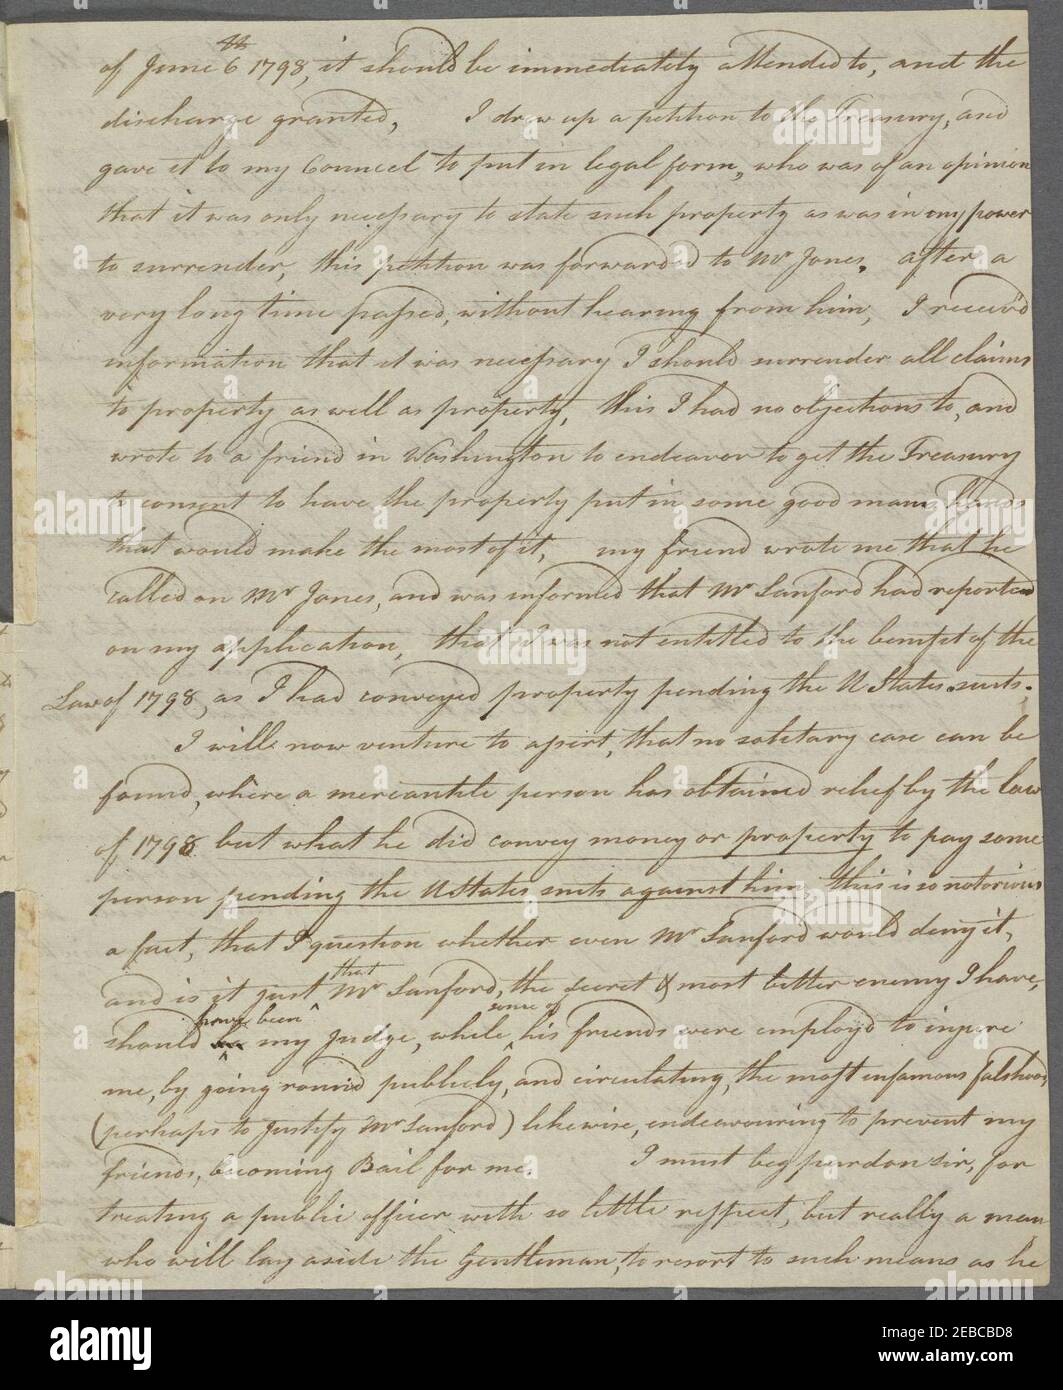 of June 6th 1798, it should be immediately attended to, and the
discharge granted, I drew up a petition to the Treasury, and
gave it to my Councel to put in legal form, who was of an opinion
that it was only necessary to state such property as was in my power
to surrender, this petition was forwarded to Mr Jones. after a
very long time passed, without hearing from him, I receiv'd
information that it was necessary I should surrender all claims
to property as well as property, this I had no objections to, and
wrote to a friend in Washington to endeavor to get the Treasury
to consent to have the property put in some good mans hands
that would make the most of it, my friend wrote me that he
called on Mr Jones, and was informed that Mr Sanford had reported
on my application, that I was not entitled to the benefit of the
Law of 1798, as I had conveyed property pending the U States suits.
I will now venture to assert, that no solitary case can be
found, where a mercantile person has obtained relief by the law
of 1798 but what he did convey money or property to pay some
person pending the U States suits against him, this is so notorious
a fact, that I question whether even Mr Sanford would deny it,
and is it just that Mr Sanford, the secret & most bitter enemy I have,
should have been my Judge, while some of his friends were employd to injure
me, by going round publicly, and circulating, the most infamous falshoods,
(perhaps to justify Mr Sanford) likewise, endeavouring to prevent my
friends, becoming Bail for me. I must beg pardon sir, for
treating a public officer with so little respect, but really a man
who will lay aside the Gentleman, to resort to such means as he
alamy
Image ID: 2EBCBD8
www.alamy.com